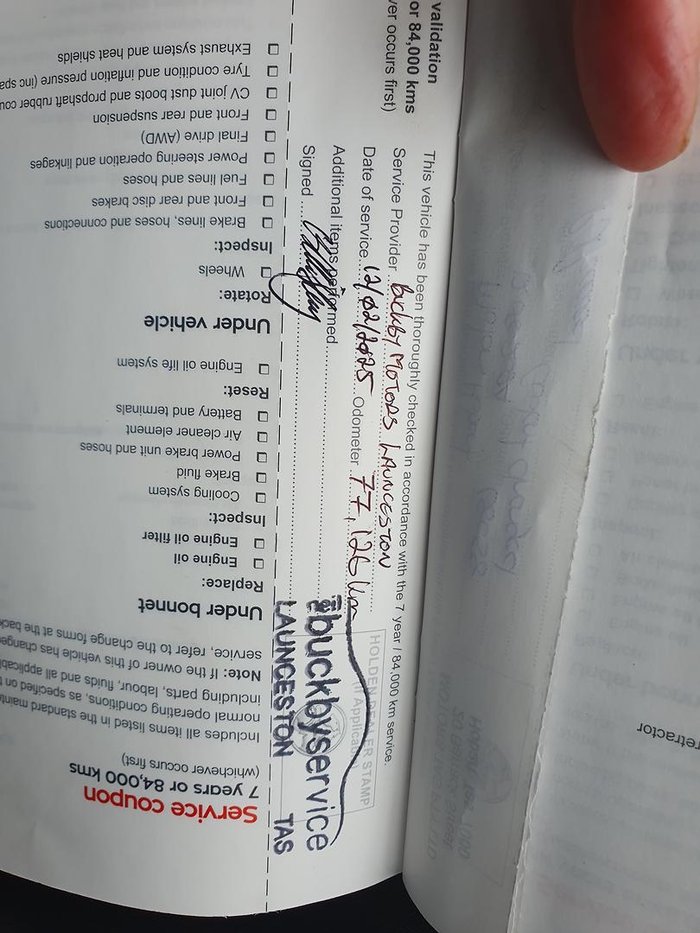 Service coupon
7 years or 84,000 kms
(whichever occurs first)
Includes all items listed in the standard
normal operating conditions, as specified on
including parts, labour, fluids and all
Note: If the owner of this vehicle has
service, refer to the change forms at the
Under bonnet
Replace:
Engine oil
Engine oil filter
Inspect:
Cooling system
Brake fluid
Power brake unit and hoses
Air cleaner element
Battery and terminals
Reset:
Engine oil life system
Under vehicle
Rotate:
Wheels
Inspect:
Brake lines, hoses and connections
Front and rear disc brakes
Fuel lines and hoses
Power steering operation and linkages
Final drive (AWD)
Front and rear suspension
CV joint dust boots and propshaft rubber
Tyre condition and inflation pressure (inc
Exhaust system and heat shields
validation
or 84,000 kms
occurs first)
This vehicle has been thoroughly checked in accordance with the 7 year / 84,000 km service.
Service Provider Buckby Motors Launceston
Date of service 12/02/2025 Odometer 77,126 km
Additional items performed
Signed
HOLDEN STAMP
buckbyservice
LAUNCESTON TAS
retractor